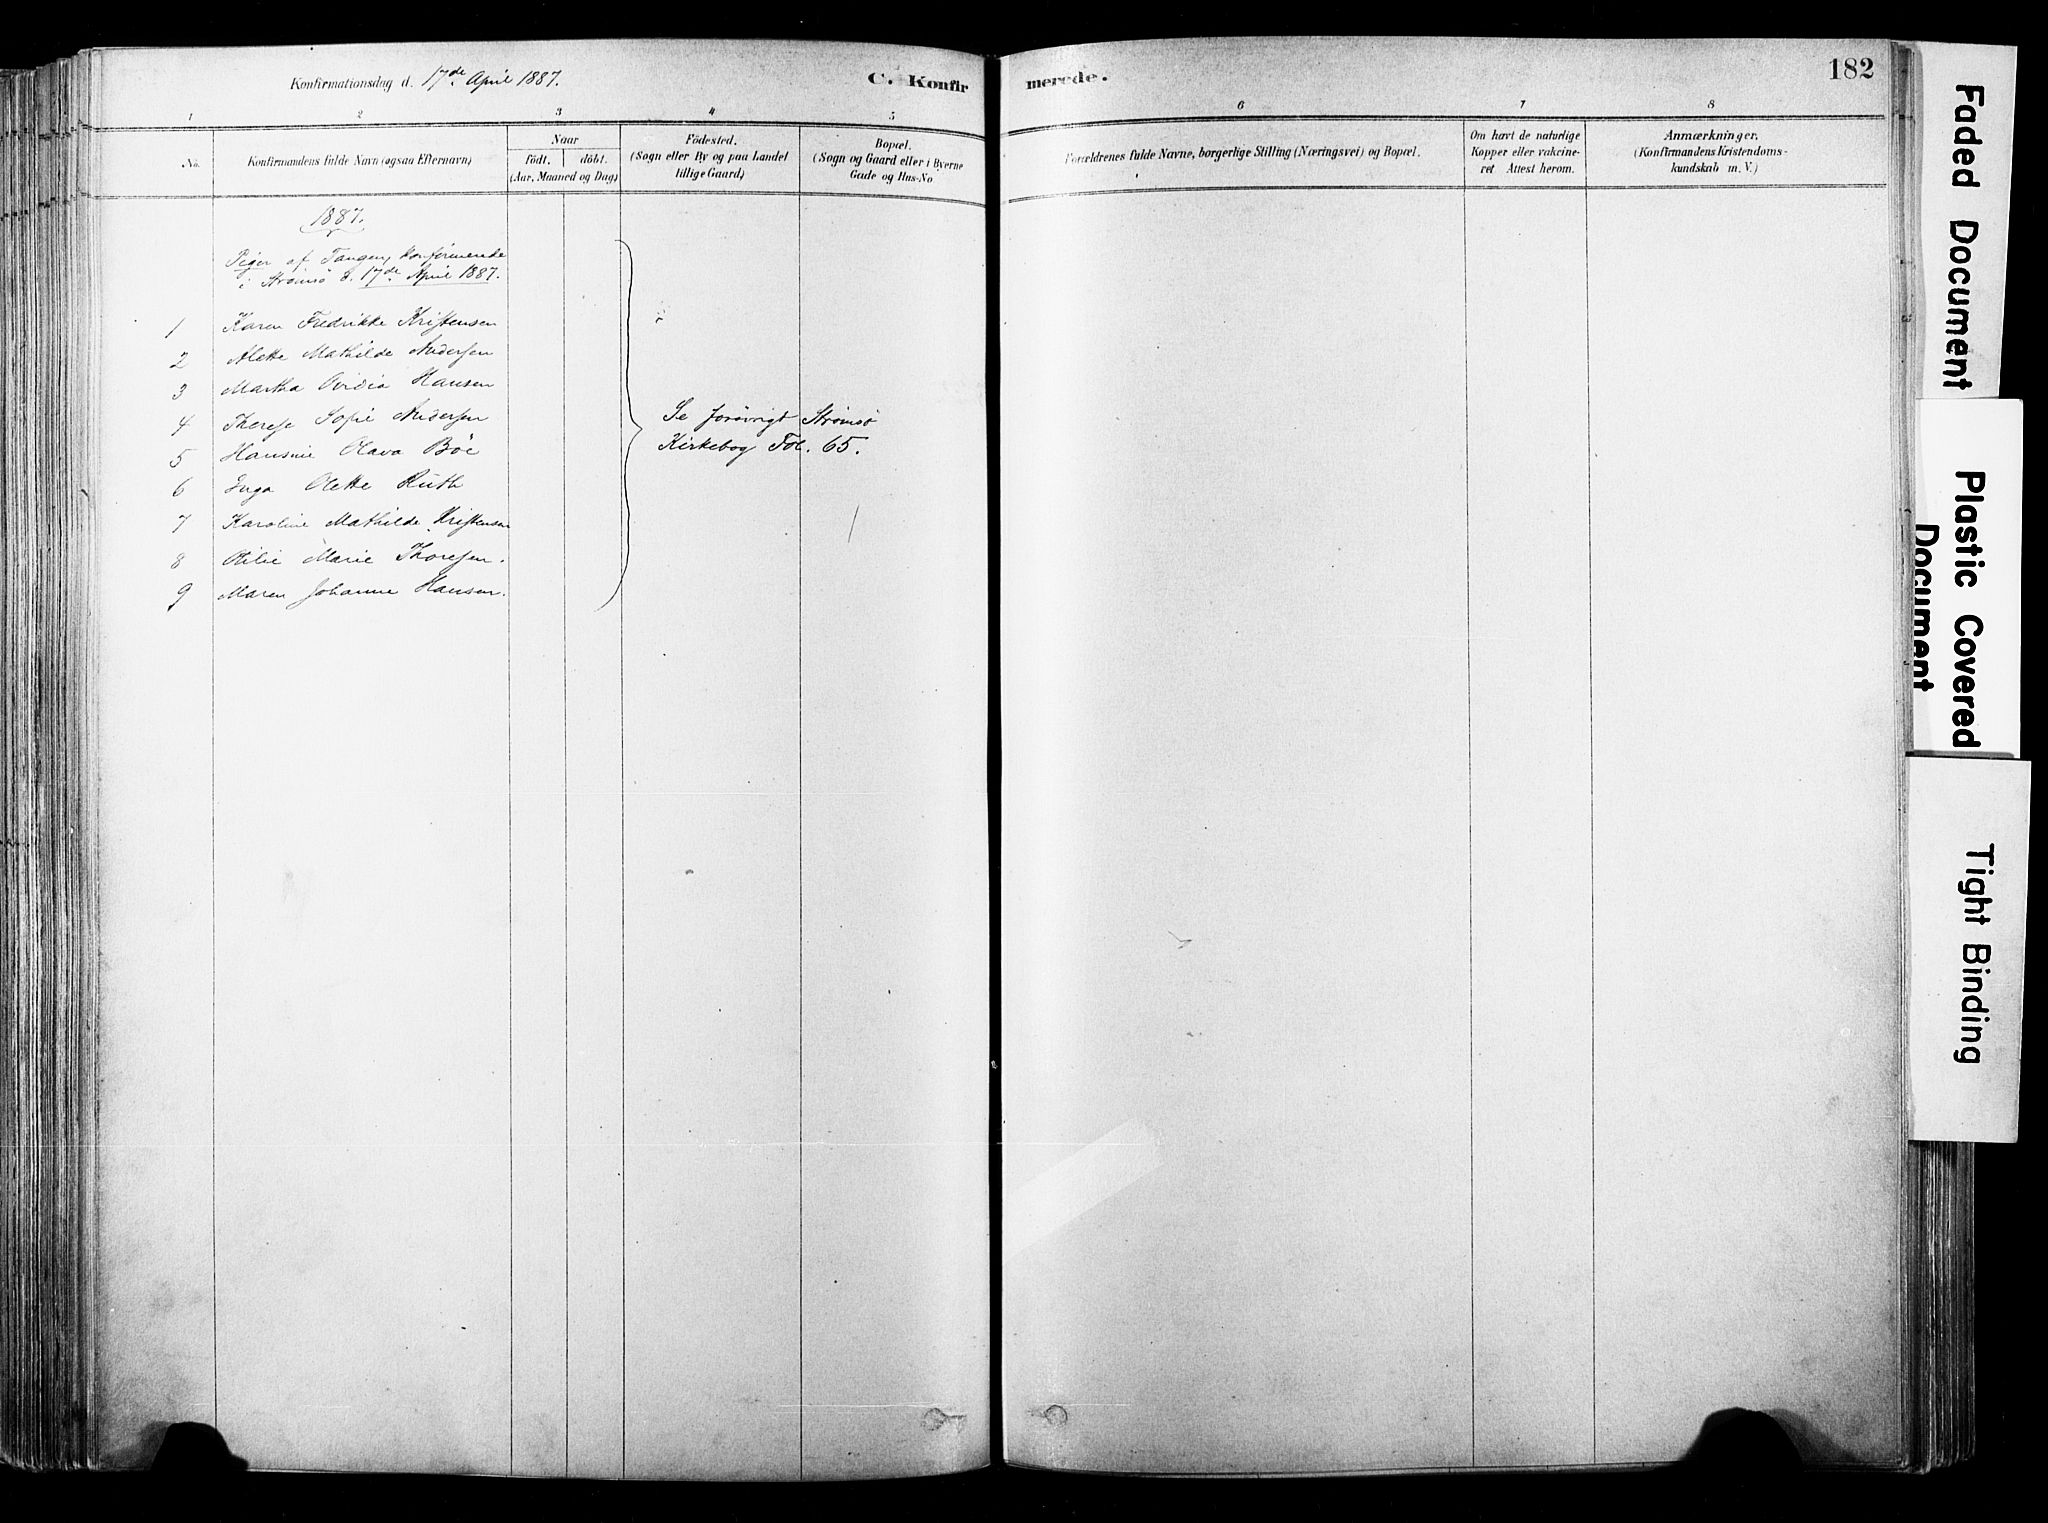 Konfirmationsdag d. 17de April 1887.
C. Konfirmerede.
182
1 2 3 4 5 6 7 8
No.
Konfirmandens fulde Navn (ogsaa Efternavn)
Naar
födt. döbt.
(Aar, Maaned og Dag)
Födested.
(Sogn eller By og paa Landet
tillige Gaard)
Bopæl.
(Sogn og Gaard eller i Byerne
Gade og Hus-No
Forældrenes fulde Navne, borgerlige Stilling (Næringsvei) og Bopæl.
Om havt de naturlige
Kopper eller vakcine-
ret Attest herom.
Anmærkninger.
(Konfirmandens Kristendoms-
kundskab m. V.)
1887.
Piger af Tangen, konfirmerede
i Strømsö d. 17de April 1887.
1 Karen Fredrikke Kristensen
2 Alette Mathilde Andersen
3 Martha Ovidia Hansen
4 Therese Sofie Andersen
5 Hansine Olava Böe
6 Inga Olette Ruth
7 Karoline Mathilde Kristensen
8 Otilie Marie Thoresen.
9 Maren Johanne Hansen.
Se forövrigt Strömsö
Kirkebog Fol. 65.
Faded Document
Plastic Covered
Document
Tight Binding